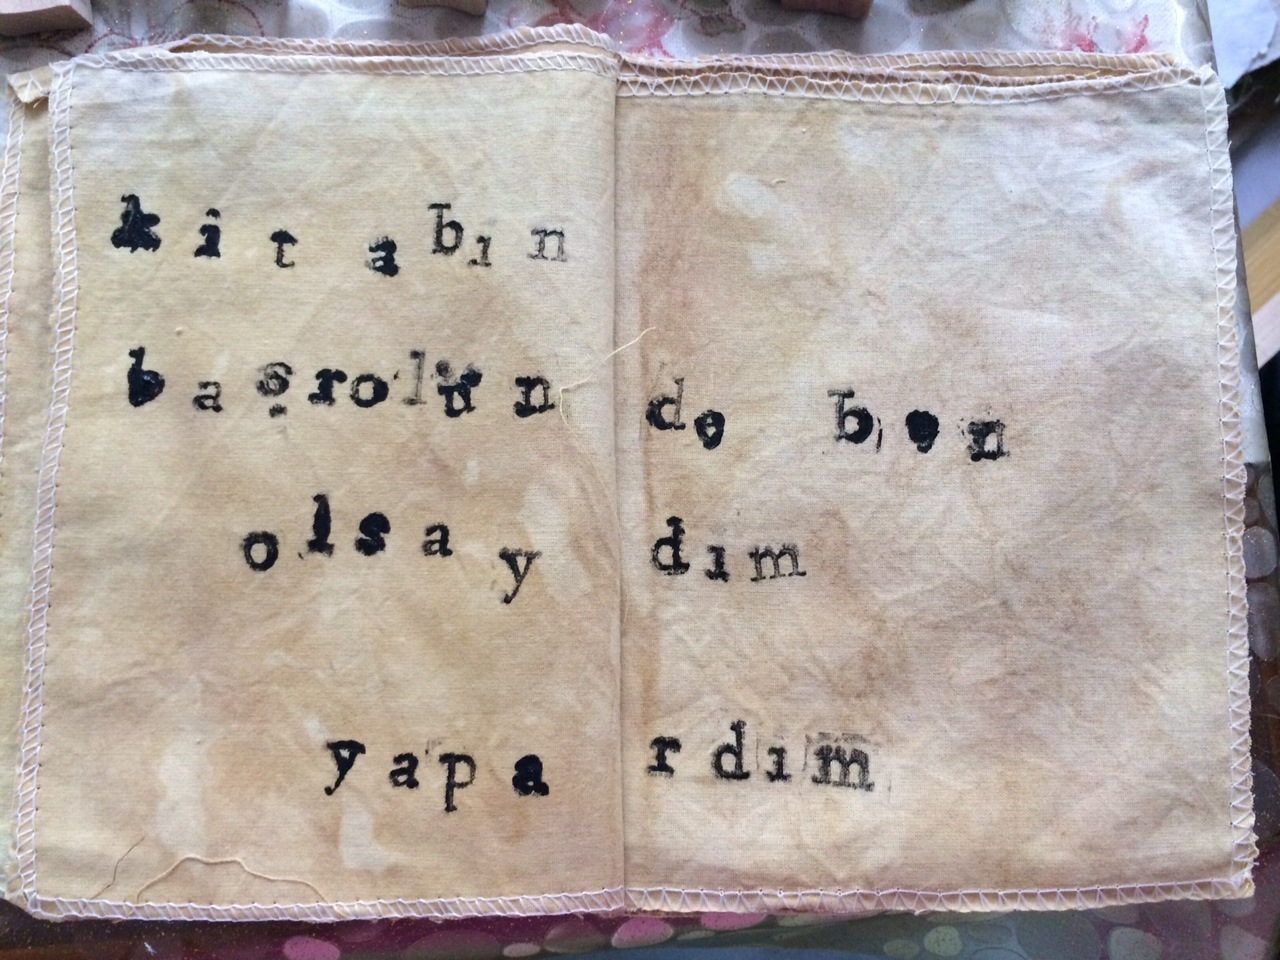 kitabın
başrolünde ben
olsaydım
yapardım